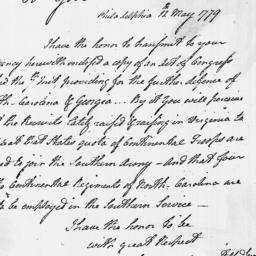 Philadelphia 12 May 1779
I have the honor to transmit to your
herewith enclosed a copy of an act of Congress
the inst providing for the further defence of
Carolina & Georgia... By it You will perceive
the Recruits rais'd & raising in Virginia to
that States quota of Continental Troops are
to join the Southern Army - and that four
Continental Regiments of North Carolina are
to be employed in the Southern Service -
I have the honor to be
with great Respect